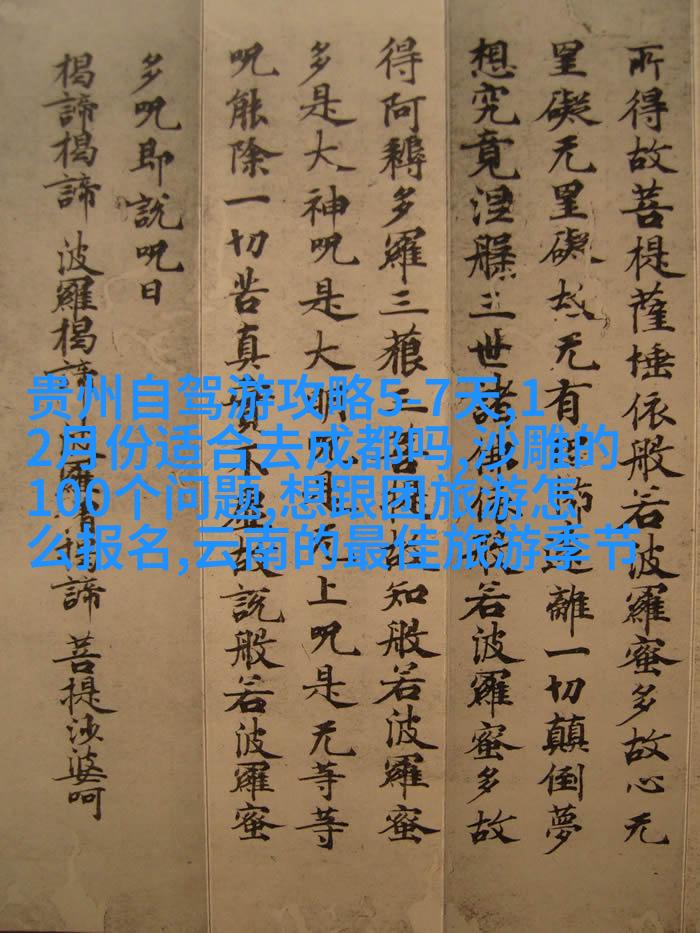 所得故菩提薩埵依般若波羅蜜多故心无
罣礙无罣礙故无有恐怖遠離一切顛倒夢
想究竟涅槃三世諸佛依般若波羅蜜多故
得阿耨多羅三藐三菩提故知般若波羅蜜
多是大神呪是大明呪是无上呪是无等等
呪能除一切苦真實不虛故說般若波羅蜜
多呪即說呪曰
揭諦揭諦 波羅揭諦 波羅僧揭諦 菩提沙婆呵
贵州自驾游攻略5-7天,1
2月份适合去成都吗,沙雕的
100个问题,想跟团旅游怎
么报名,云南的最佳旅游季节